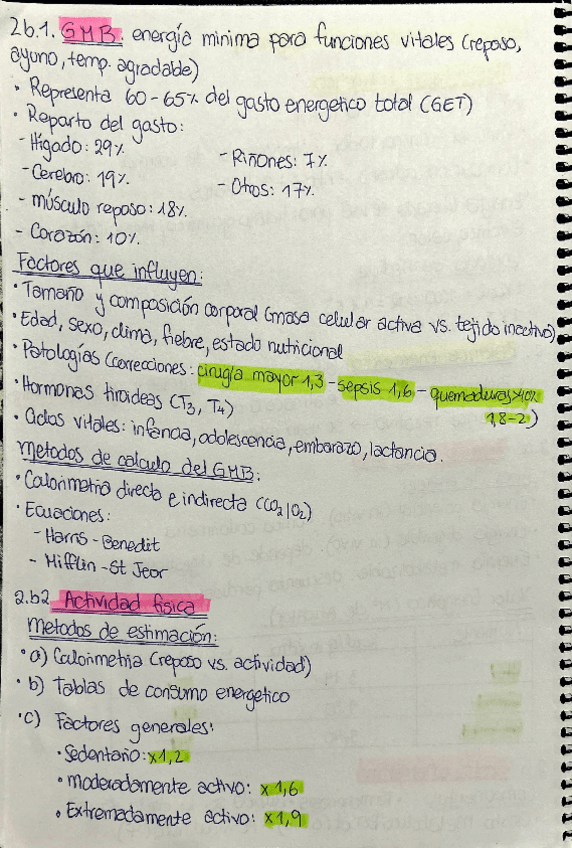 2b.1. GMB: energía minima para funciones vitales (reposo,
ayuno, temp. agradable)
· Representa 60-65% del gasto energetico total (GET)
· Reparto del gasto:
- Hígado: 29%
- Riñones: 7%
- Cerebro: 19%
- Otros: 17%
- músculo reposo: 18%
- Corazón: 10%
Factores que influyen:
· Tamaño y composición corporal (masa celular activa vs. tejido inactivo)
· Edad, sexo, clima, fiebre, estado nutricional
· Patologías (correcciones: cirugía mayor 1,3 - sepsis 1,6 - quemaduras >40%
1,8-2)
· Hormonas tiroideas (T3, T4)
· Ciclos vitales: infancia, adolescencia, embarazo, lactancia.
Metodos de calculo del GMB:
· Calorimetria directa e indirecta (CO2/O2)
· Ecuaciones:
- Harris - Benedit
- Mifflin - St Jeor
2.b2 Actividad fisica
Metodos de estimación:
· a) Calorimetria (reposo vs. actividad)
· b) Tablas de consumo energetico
· c) Factores generales:
· Sedentario: x1,2
· moderadamente activo: x1,6
· Extremadamente activo: x1,9